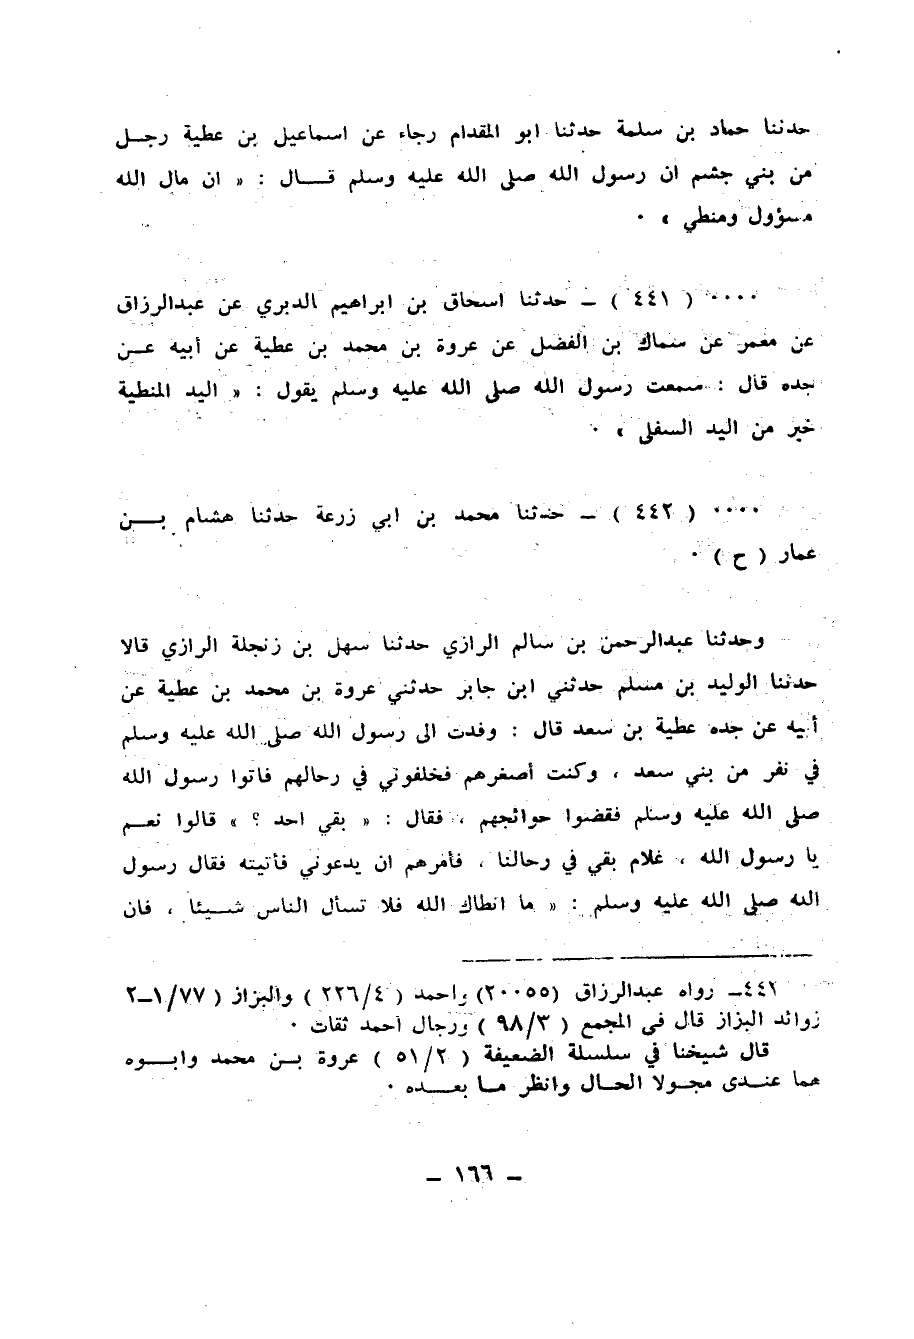 حدثنا حماد بن سلمة حدثنا ابو المقدام رجاء عن اسماعيل بن عطية رجـل
من بني جشم ان رسول الله صلى الله عليه وسلم قـــال : « ان مال الله
مسؤول ومنطي » ٠
٠٠٠٠ ( ٤٤١ ) ــ حدثنا اسحاق بن ابراهيم الدبري عن عبدالرزاق
عن معمر عن سماك بن الفضل عن عروة بن محمد بن عطية عن أبيه عــن
جده قال : سمعت رسول الله صلى الله عليه وسلم يقول : « اليد المنطية
خير من اليد السفلى » ٠
٠٠٠٠ ( ٤٤٢ ) ــ حدثنا محمد بن ابي زرعة حدثنا هشام بـــن
عمار ( ح ) ٠
وحدثنا عبدالرحمن بن سالم الرازي حدثنا سهل بن زنجلة الرازي قالا
حدثنا الوليد بن مسلم حدثني ابن جابر حدثني عروة بن محمد بن عطية عن
أبيه عن جده عطية بن سعد قال : وفدت الى رسول الله صلى الله عليه وسلم
في نفر من بني سعد ، وكنت أصغرهم فخلفوني في رحالهم فاتوا رسول الله
صلى الله عليه وسلم فقضوا حوائجهم ، فقال : « بقي احد ؟ » قالوا نعـم
يا رسول الله ، غلام بقي في رحالنا ، فأمرهم ان يدعوني فأتيته فقال رسول
الله صلى الله عليه وسلم : « ما انطاك الله فلا تسأل الناس شـــيئا ، فان
٤٤١ــ رواه عبدالرزاق (٢٠٠٥٥) واحمد ( ٢٢٦/٤ ) والبزاز ( ١/٧٧ــ٢
زوائد البزاز قال في المجمع ( ٩٨/٣ ) ورجال احمد ثقات ٠
قال شيخنا في سلسلة الضعيفة ( ٥١/٢ ) عروة بــن محمد وابــوه
هما عنــدى مجـولا الحـال وانظر مــا بعـــده ٠
ــ ١٦٦ ــ